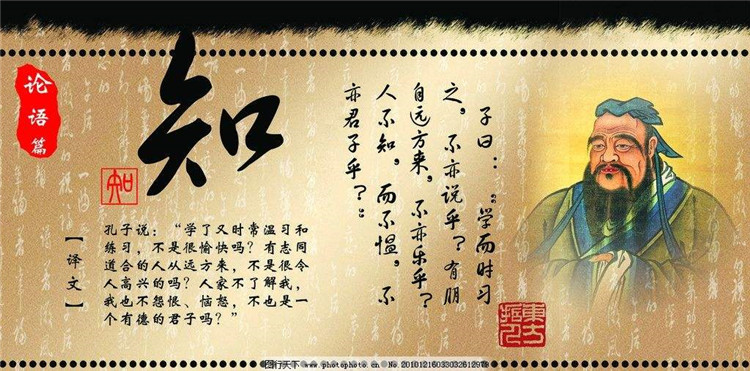 论语篇
知
知
子曰：“学而时习
之，不亦说乎？有朋
自远方来，不亦乐乎？
人不知，而不愠，不
亦君子乎？”
【译文】
孔子说：“学了又时常温习和
练习，不是很愉快吗？有志同
道合的人从远方来，不是很令
人高兴的吗？人家不了解我，
我也不怨恨、恼怒，不也是一
个有德的君子吗？”
图行天下 www.photophoto.cn